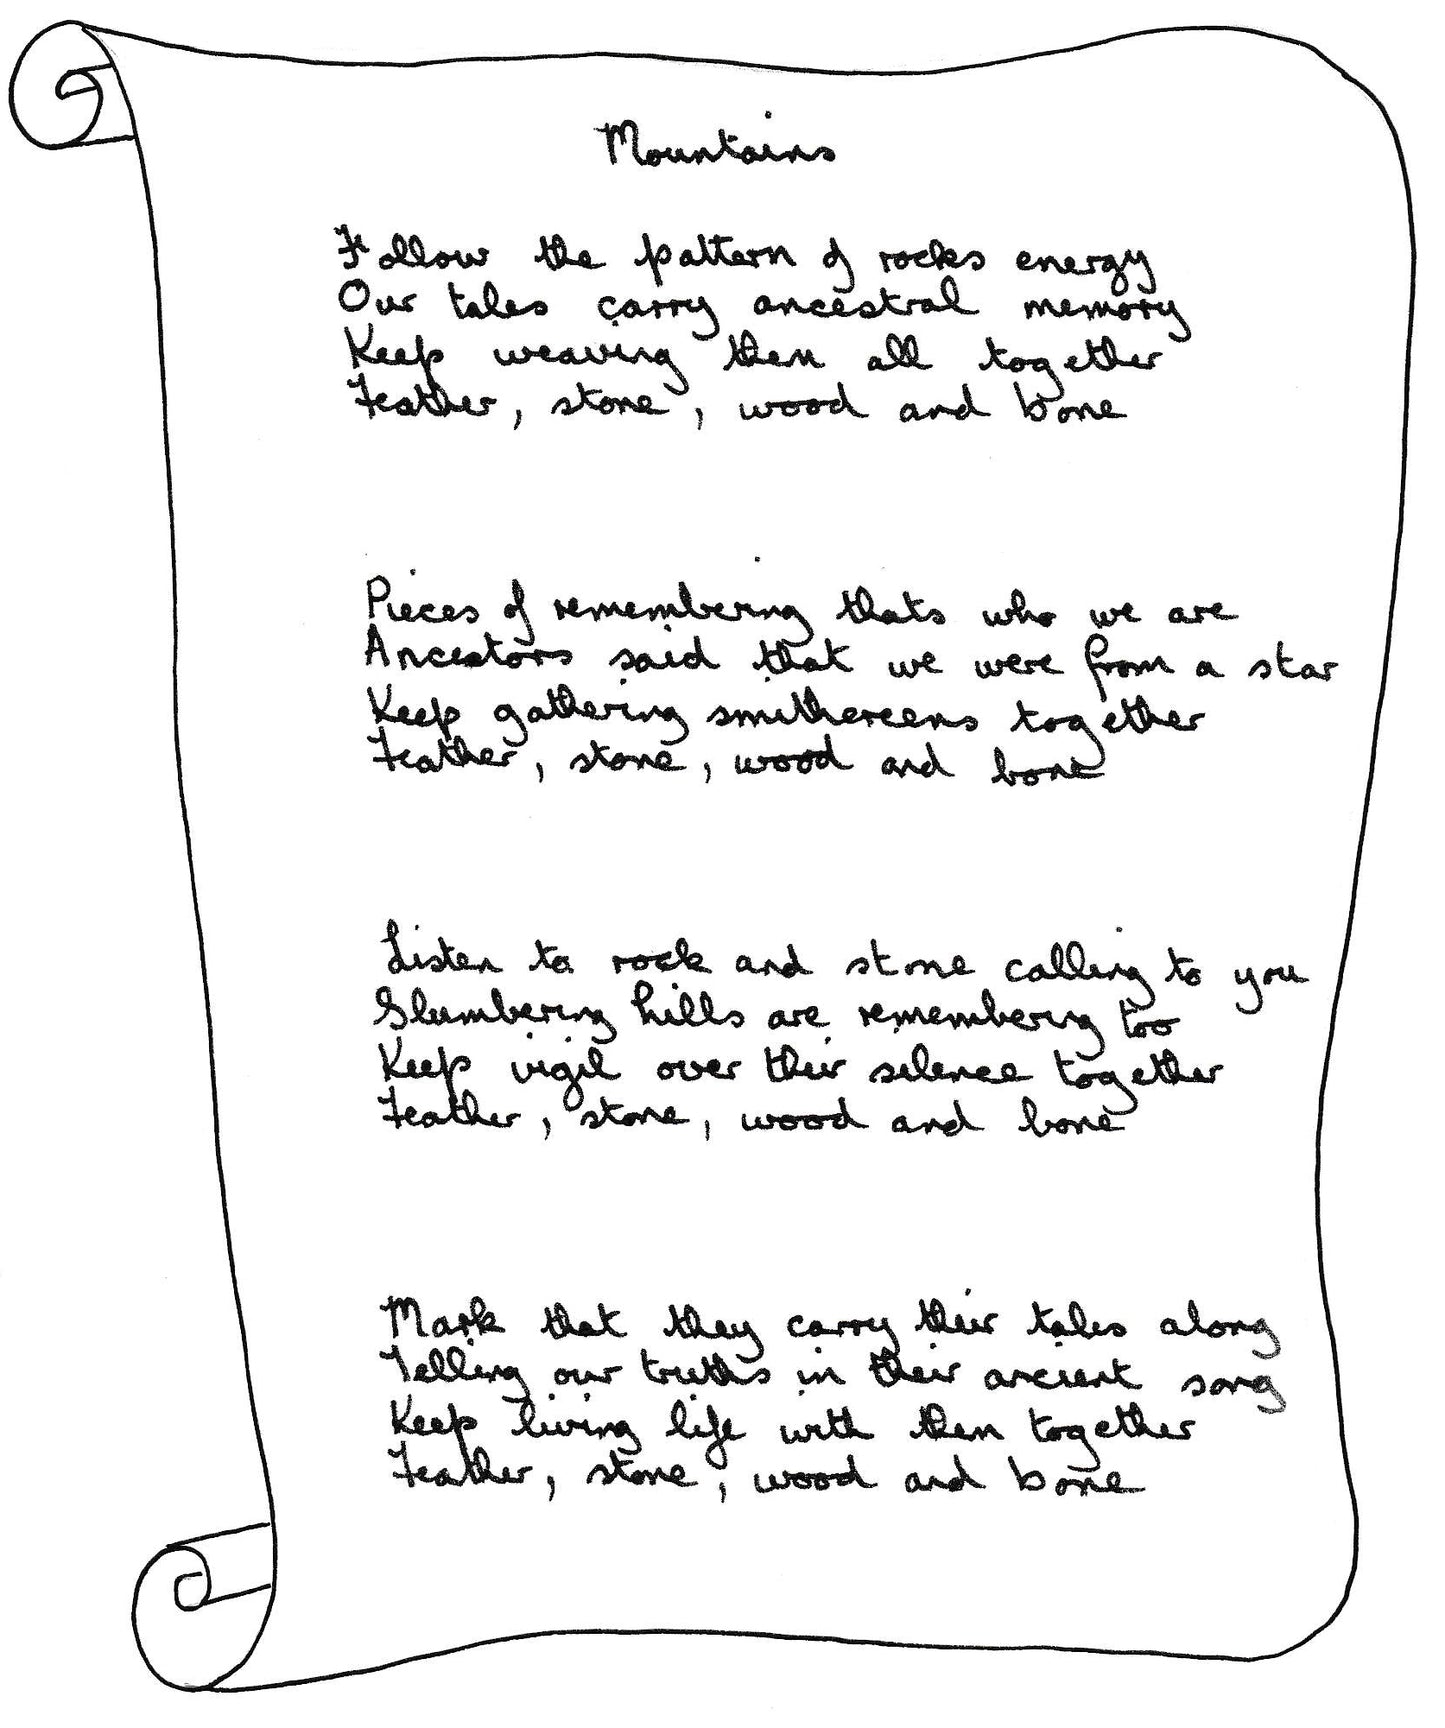 Mountains
Follow the pattern of rocks energy
Our tales carry ancestral memory
Keep weaving them all together
Feather, stone, wood and bone
Pieces of remembering thats who we are
Ancestors said that we were from a star
Keep gathering smithereens together
Feather, stone, wood and bone
Listen to rock and stone calling to you
Slumbering hills are remembering too
Keep vigil over their silence together
Feather, stone, wood and bone
Mark that they carry their tales along
Telling our truths in their ancient song
Keep living life with them together
Feather, stone, wood and bone